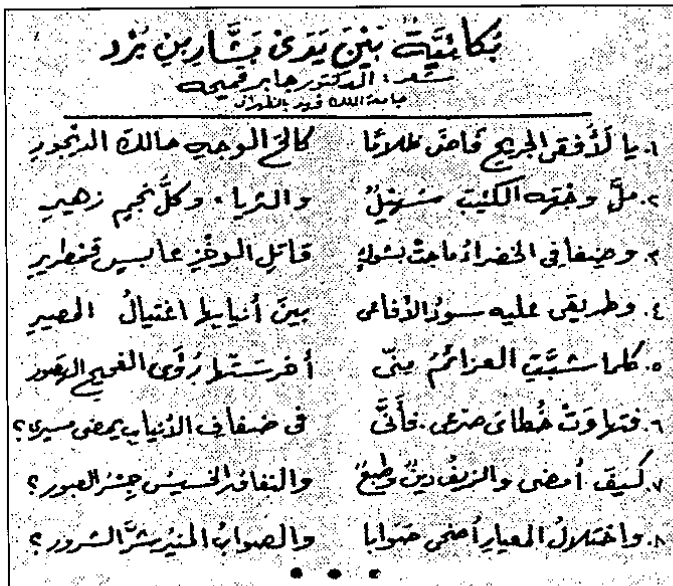 بكائية بين يدي بشار بن برد
شعر: الدكتور جابر قميحه
جامعة الملك فهد بالظهران
١. يا لَأفقي الجريح فاضَ ظلامًا كالحَ الوجهِ حالكَ الديجورِ
٢. ملَّ وجهَه الكئيبَ سُهَيْلٌ والثريا، وكلُّ نجمٍ زهيرِ
٣. وضفافي الخضراءُ ماجتْ بشوكٍ قاتلِ الوخْزِ عابسٍ قمطريرِ
٤. وطريقي عليه سودُ الأفاعي بينَ أنيابها اغتيالُ المصيرِ
٥. كلما شبَّتِ العزائمُ مِنّي أخرستْها رُؤَى الفحيحِ الهصور
٦. فتهاوَتْ خُطايَ صرعى. فأَنَّى في ضفافِ الأنيابِ يمضي مسيري؟
٧. كيفَ أمضي والزيفُ دينٌ وطبعٌ والنفاقُ الخسيسُ جِسْرُ العبور؟
٨. واختلالُ المعيارِ أضحى صوابا والصوابُ المنيرُ شرَّ الشرور؟